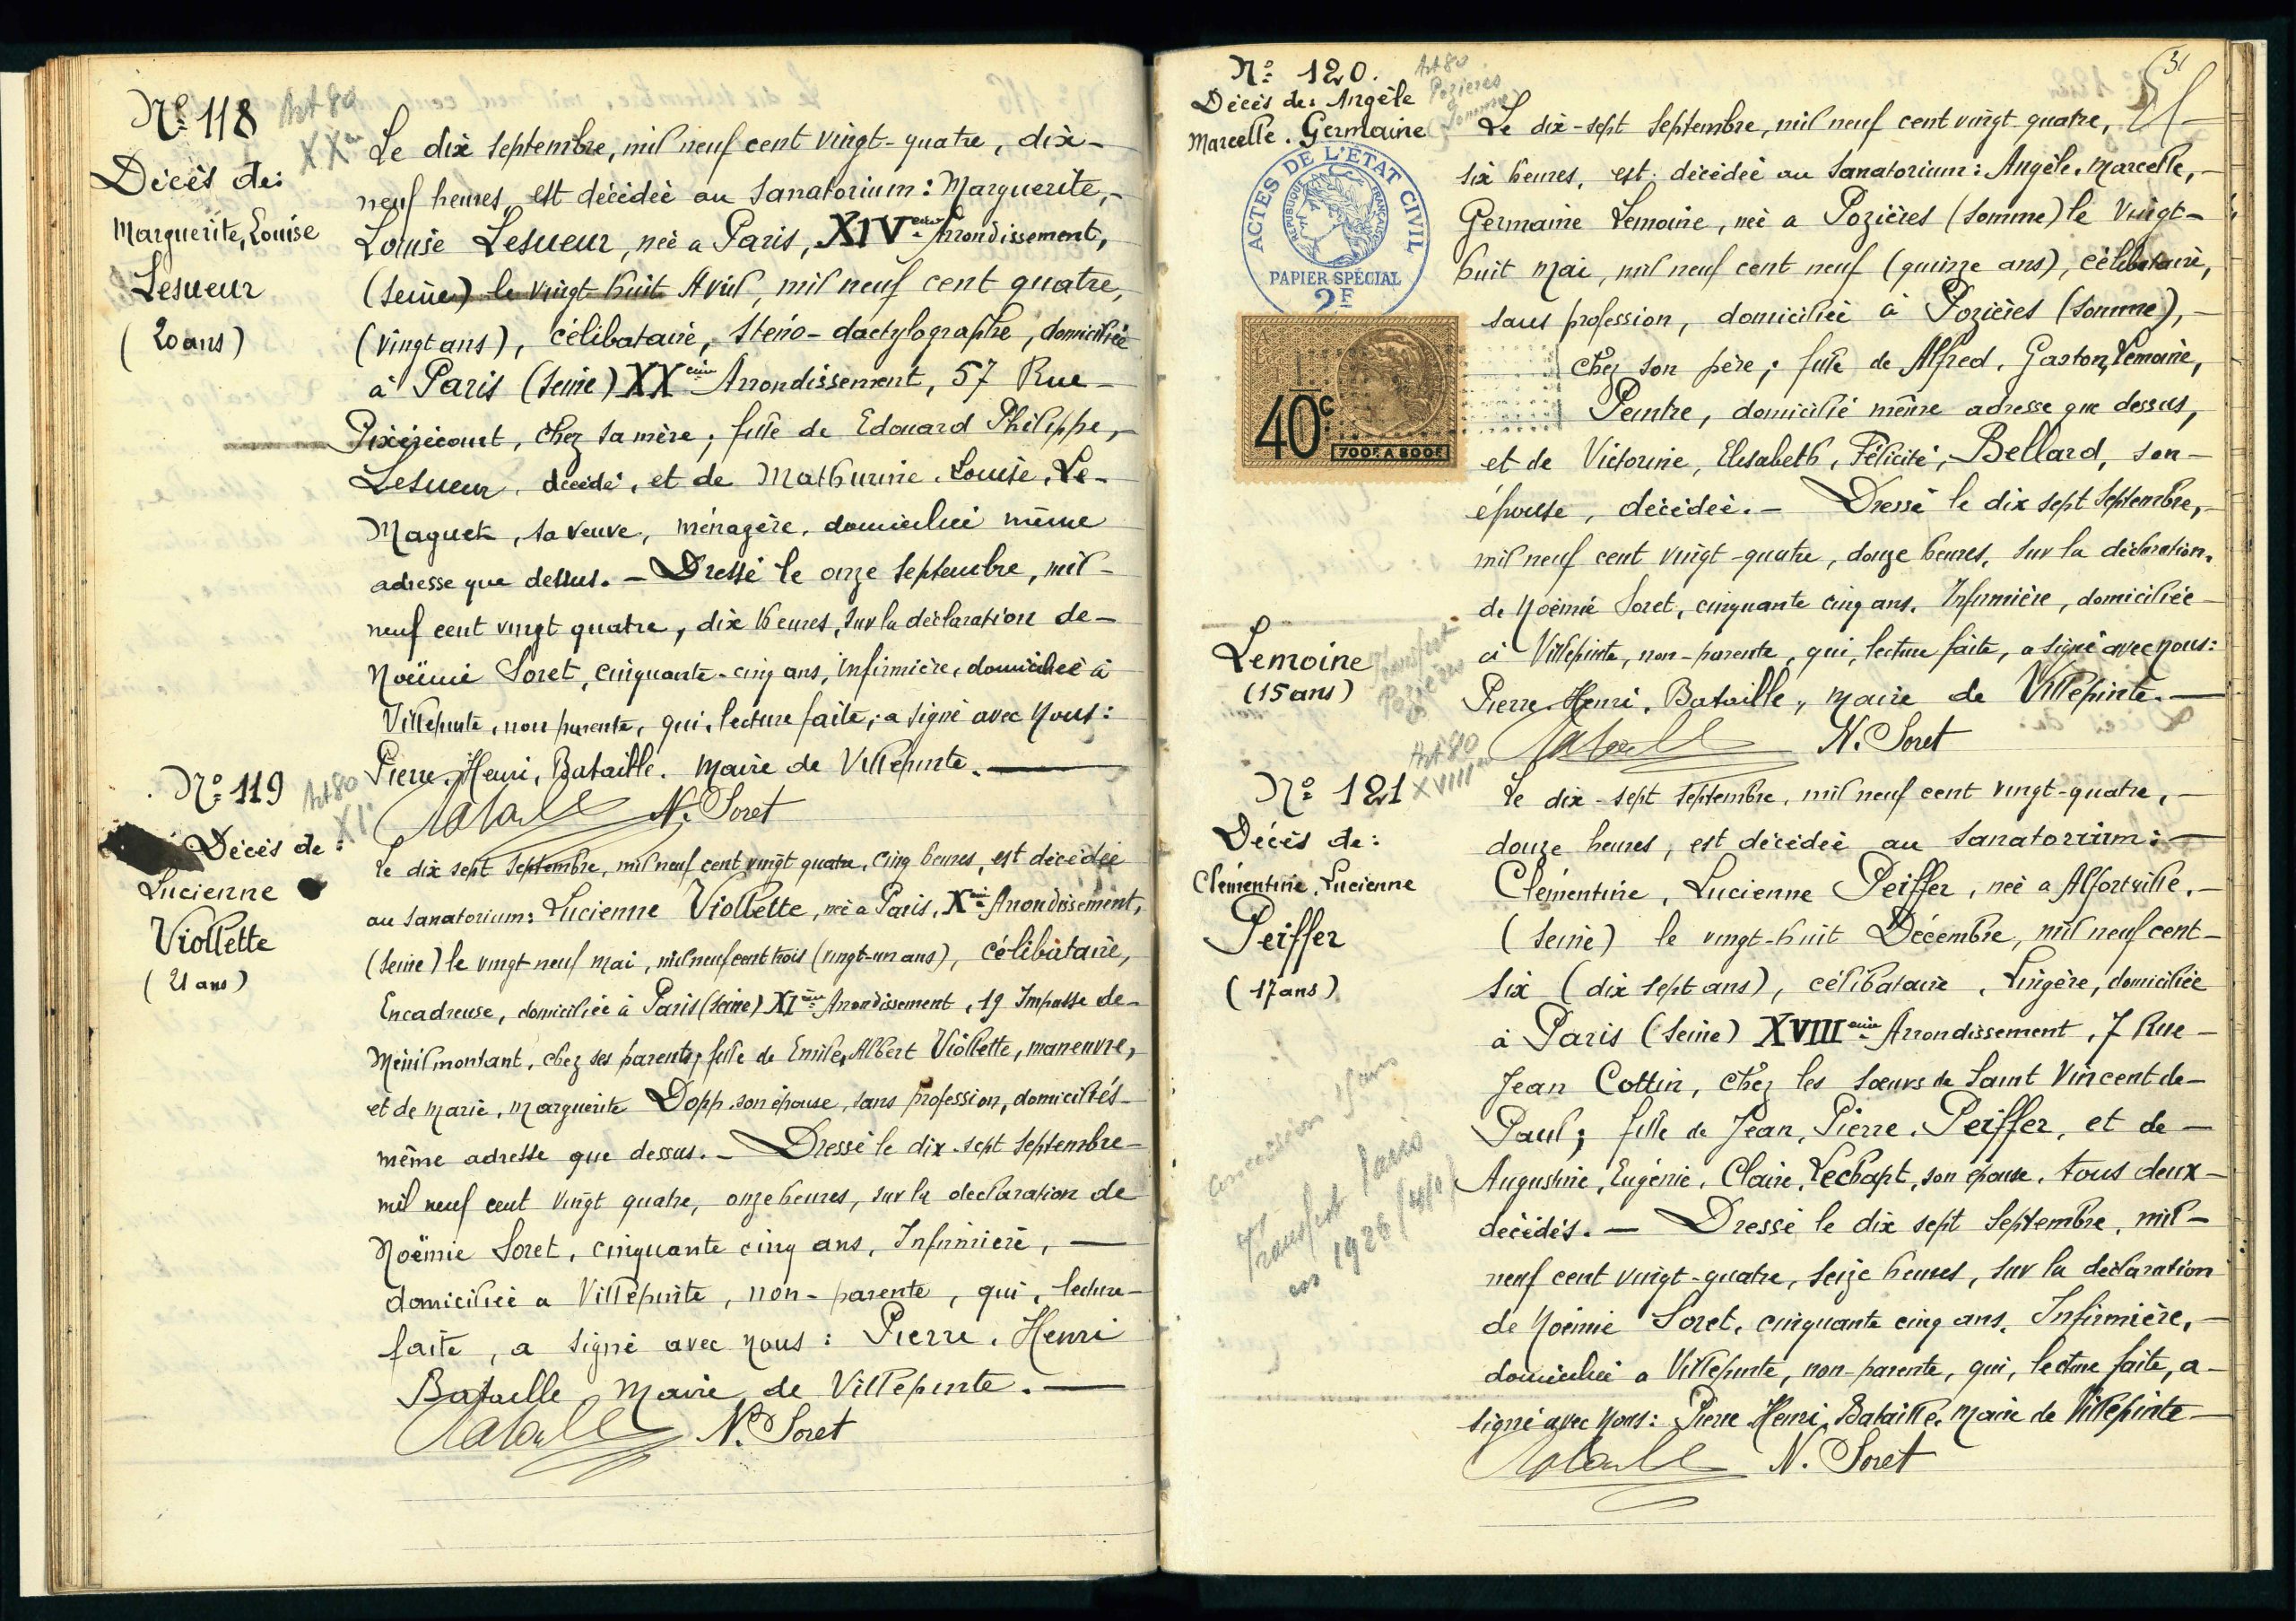 Nº 118
Art 80
XXe
Décès de:
Marguerite, Louise
Lesueur
(20 ans)
Le dix septembre, mil neuf cent vingt-quatre, dix-
neuf heures, est décédée au Sanatorium: Marguerite,-
Louise Lesueur, née a Paris, XIVeme Arrondissement,
(Seine) le vingt huit Avril, mil neuf cent quatre,
(vingt ans), célibataire, sténo-dactylographe, domiciliée
à Paris (Seine) XXeme Arrondissement, 57 Rue-
Pixérécourt, chez sa mère; fille de Edouard Philippe,-
Lesueur, décédé, et de Mathurine, Louise, Le-
Maguet, sa veuve, ménagère, domiciliée même
adresse que dessus.- Dressé le onze Septembre, mil-
neuf cent vingt quatre, dix heures, sur la déclaration de-
Noëmie Soret, cinquante-cinq ans, infirmière, domiciliée à
Villepinte, non parente, qui, lecture faite, a signé avec Nous:
Pierre, Henri, Bataille. Maire de Villepinte.-
Bataille N. Soret
Nº 119
Art 80
XIe
Décès de:
Lucienne
Viollette
(21 ans)
Le dix sept Septembre, mil neuf cent vingt quatre, cinq heures, est décédée
au Sanatorium: Lucienne Viollette, née a Paris, Xeme Arrondissement,
(Seine) le vingt neuf mai, mil neuf cent trois (vingt-un ans), célibataire,
Encadreuse, domiciliée à Paris (Seine) XIeme Arrondissement, 19 Impasse de-
Ménilmontant, chez ses parents; fille de Emile, Albert Viollette, manœuvre,
et de Marie, Marguerite Dopp, son épouse, sans profession, domiciliés-
même adresse que dessus.- Dressé le dix-sept Septembre-
mil neuf cent vingt quatre, onze heures, sur la déclaration de
Noëmie Soret, cinquante cinq ans, Infirmière,-
domiciliée a Villepinte, non-parente, qui, lecture-
faite, a signé avec nous: Pierre, Henri
Bataille, Maire de Villepinte.-
Bataille N. Soret
Nº 120.
Art 80
Pozières
(Somme)
Décès de: Angèle
Marcelle. Germaine
ACTES DE L'ÉTAT CIVIL
REPUBLIQUE FRANÇAISE
PAPIER SPÉCIAL
2F
40c
700F. A 800F.
Lemoine
(15 ans)
Transfert
Pozières
31
Le dix-sept Septembre, mil neuf cent vingt-quatre,
six heures, est décédée au Sanatorium: Angèle, Marcelle,-
Germaine Lemoine, née a Pozières (Somme) le vingt-
huit mai, mil neuf cent neuf (quinze ans), célibataire,
sans profession, domiciliée à Pozières (Somme),-
chez son père; fille de Alfred, Gaston, Lemoine,
Peintre, domicilié même adresse que dessus,
et de Victorine, Elisabeth, Félicité, Bellard, son-
épouse, décédée.- Dressé le dix sept Septembre,-
mil neuf cent vingt-quatre, douze heures, sur la déclaration,
de Noëmie Soret, cinquante cinq ans, Infirmière, domiciliée-
à Villepinte, non-parente, qui, lecture faite, a signé avec nous:
Pierre, Henri, Bataille, Maire de Villepinte.-
Bataille N. Soret
Nº 121
Art 80
XVIIIe
Décès de:
Clémentine, Lucienne
Peiffer
(17 ans)
Concession 15 ans
Transfert Paris
en 1926
Le dix-sept Septembre, mil neuf cent vingt-quatre,-
douze heures, est décédée au Sanatorium:-
Clémentine, Lucienne Peiffer, née a Alfortville,-
(Seine) le vingt-huit Décembre, mil neuf cent-
six (dix sept ans), célibataire, Lingère, domiciliée
à Paris (Seine) XVIIIeme Arrondissement, 7 Rue-
Jean Cottin, chez les Sœurs de Saint Vincent de-
Paul; fille de Jean, Pierre, Peiffer, et de-
Augustine, Eugénie, Claire, Lechapt, son épouse, tous deux-
décédés.- Dressé le dix sept Septembre, mil-
neuf cent vingt-quatre, seize heures, sur la déclaration
de Noëmie Soret, cinquante cinq ans, Infirmière,-
domiciliée a Villepinte, non-parente, qui, lecture faite, a-
signé avec Nous: Pierre Henri, Bataille, Maire de Villepinte-
Bataille N. Soret